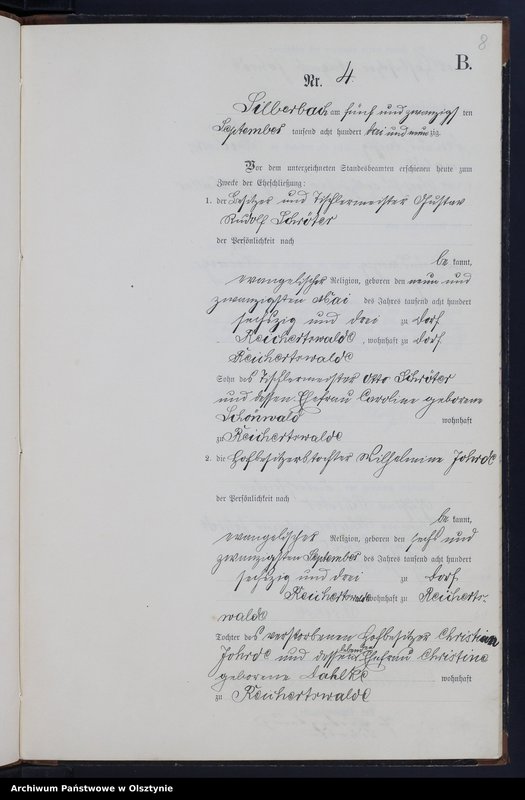 8
B.
Nr. 4
Silberbach am fünf und zwanzigsten
September tausend acht hundert drei und neunzig.
Vor dem unterzeichneten Standesbeamten erschienen heute zum
Zwecke der Eheschließung:
1. der Besitzer und Tischlermeister Gustav
Rudolf Schröter
der Persönlichkeit nach
be kannt,
evangelischer Religion, geboren den neun und
zwanzigsten Mai des Jahres tausend acht hundert
sechszig und drei zu Dorf
Reichertswalde, wohnhaft zu Dorf
Reichertswalde
Sohn des Tischlermeister Otto Schröter
und dessen Ehefrau Caroline geborene
Schönwald wohnhaft
zu Reichertswalde
2. die Hofbesitzerstochter Wilhelmine Johrde
der Persönlichkeit nach
be kannt,
evangelischer Religion, geboren den sechs und
zwanzigsten September des Jahres tausend acht hundert
sechszig und drei zu Dorf
Reichertswalde wohnhaft zu Reicherts-
walde
Tochter des verstorbenen Hofbesitzer Christian
Johrde und dessen lebenden Ehefrau Christine
geborene Dahlke wohnhaft
zu Reichertswalde
Archiwum Państwowe w Olsztynie